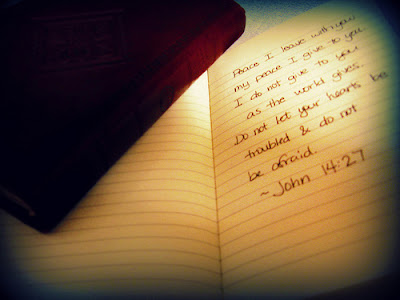 Peace I leave with you
my peace I give to you
I do not give to you
as the world gives.
Do not let your hearts be
troubled & do not
be afraid.
~John 14:27